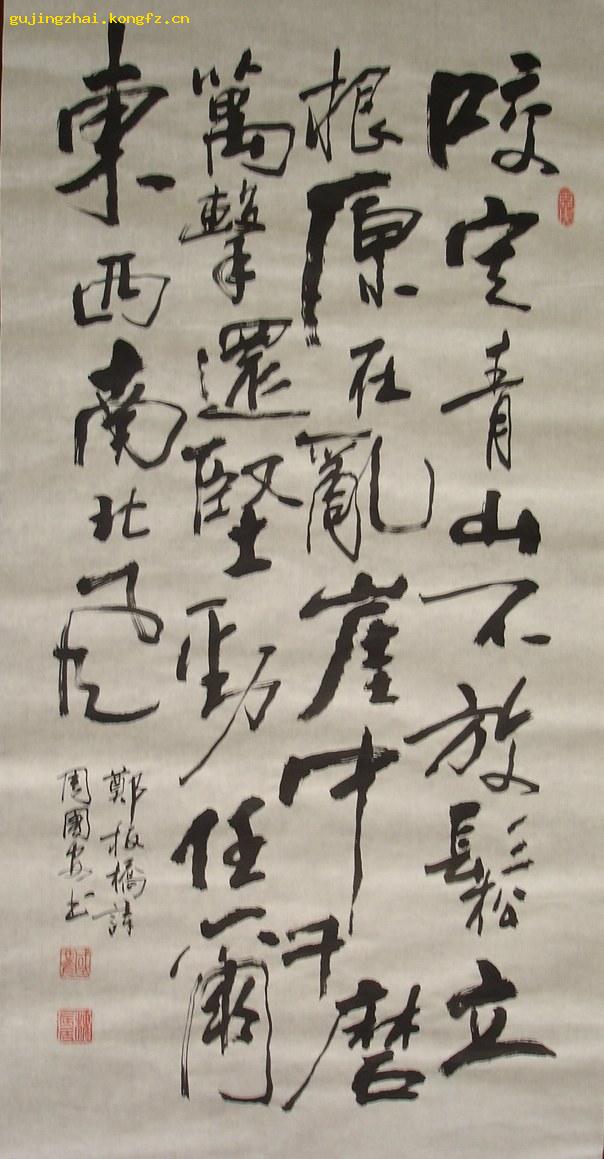 gujingzhai.kongfz.cn
咬定青山不放鬆立
根原在亂崖中千磨
萬擊還堅勁任爾
東西南北風
鄭板橋詩
周國书